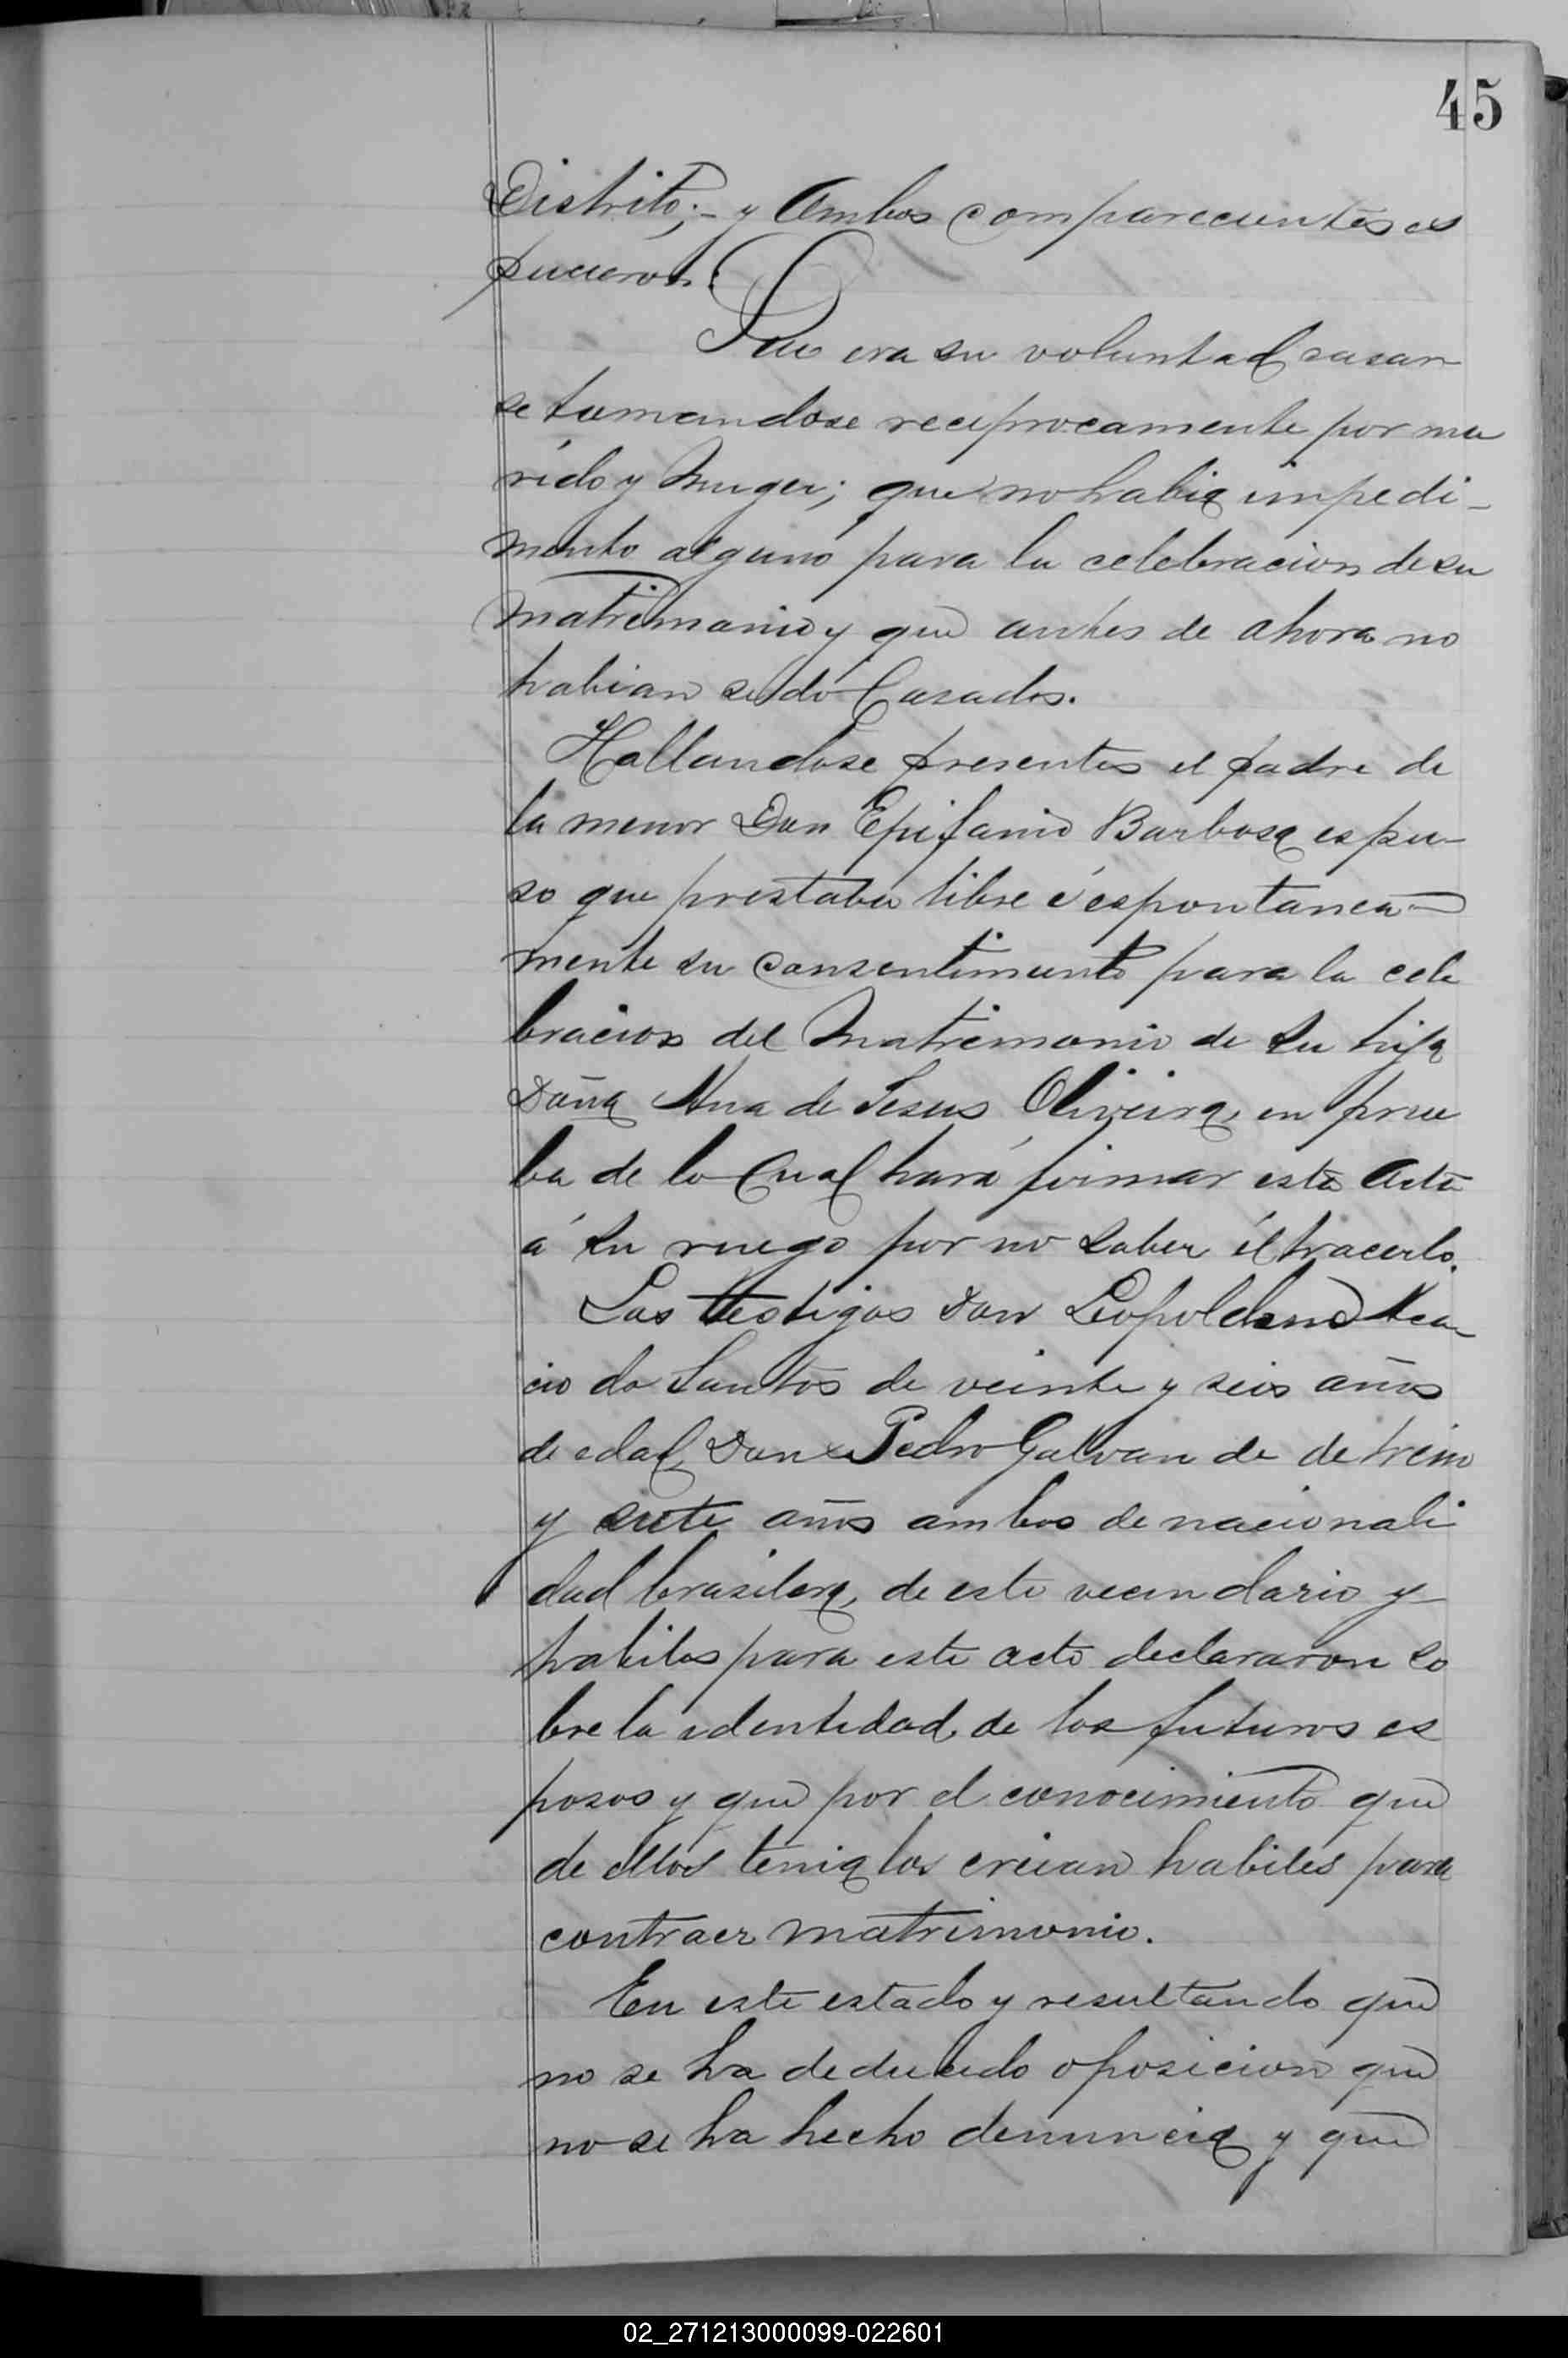 45
Distrito;- y Ambos comparecientes es
pucieron:
Que era su voluntad casar
se tomandose reciprocamente por ma
rido y Muger; que no habia impedi-
mento alguno para la celebracion de su
matrimonio y que antes de ahora no
habian sido Casados.
Hallandose presentes el padre de
la menor Don Epifanio Barbosa espu-
so que prestaba libre é espontanea-
mente su Consentimiento para la cele
bracion del Matrimonio de su hija
Doña Ana de Jesus Oliveira, en prue
ba de lo Cual hará firmar esta Acta
á su ruego por no saber él hacerlo.
Los testigos Don Leopoldino Aca-
cio do Santos de veinte y seis años
de edad, Don Pedro Galvan de de trein
y siete años ambos de nacionali
dad brasilera, de este vecindario y
habiles para este acto declararon so
bre la identidad de los futuros es
posos y que por el conocimiento que
de ellos tenia los creian habiles para
contraer matrimonio.
En este estado y resultando que
no se ha deducido oposicion que
no se ha hecho denuncia y que
02_271213000099-022601